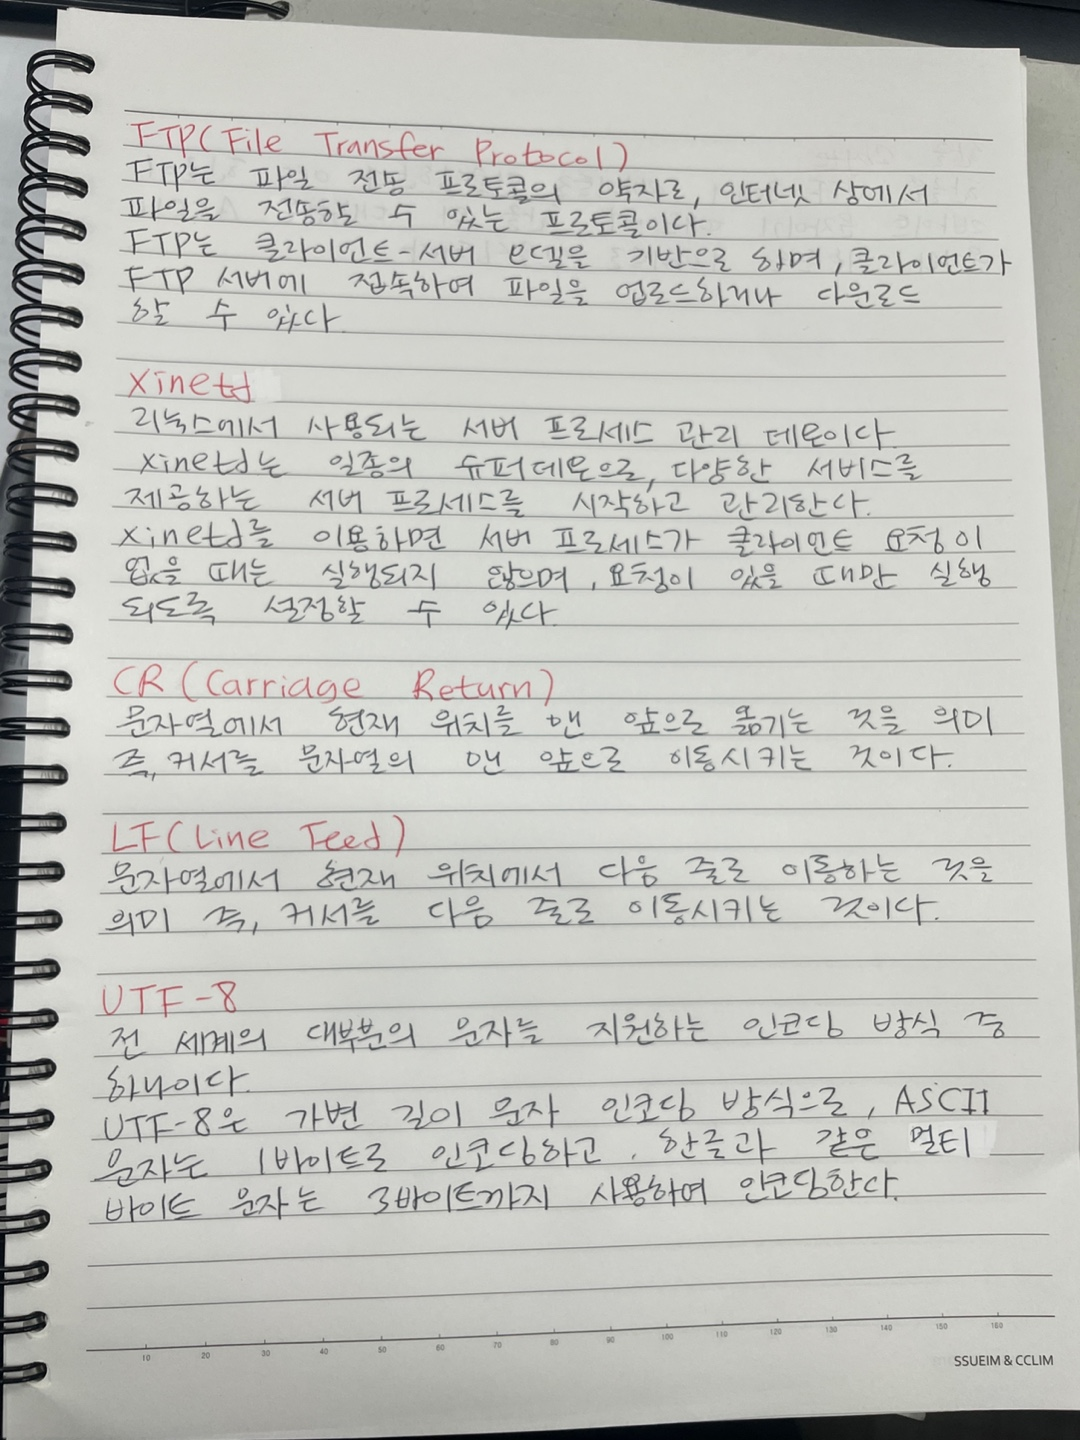 FTP(File Transfer Protocol)
FTP는 파일 전송 프로토콜의 약자로, 인터넷 상에서
파일을 전송할 수 있는 프로토콜이다.
FTP는 클라이언트-서버 모델을 기반으로 하며, 클라이언트가
FTP 서버에 접속하여 파일을 업로드하거나 다운로드
할 수 있다.
xinetd
리눅스에서 사용되는 서버 프로세스 관리 데몬이다.
xinetd는 일종의 슈퍼데몬으로, 다양한 서비스를
제공하는 서버 프로세스를 시작하고 관리한다.
xinetd를 이용하면 서버 프로세스가 클라이언트 요청이
없을 때는 실행되지 않으며, 요청이 있을 때만 실행
되도록 설정할 수 있다.
CR (Carriage Return)
문자열에서 현재 위치를 맨 앞으로 옮기는 것을 의미
즉, 커서를 문자열의 맨 앞으로 이동시키는 것이다.
LF(Line Feed)
문자열에서 현재 위치에서 다음 줄로 이동하는 것을
의미 즉, 커서를 다음 줄로 이동시키는 것이다.
UTF-8
전 세계의 대부분의 문자를 지원하는 인코딩 방식 중
하나이다.
UTF-8은 가변 길이 문자 인코딩 방식으로, ASCII
문자는 1바이트로 인코딩하고, 한글과 같은 멀티
바이트 문자는 3바이트까지 사용하여 인코딩한다.
10 20 30 40 50 60 70 80 90 100 110 120 130 140 150 160
SSUEIM & CCLIM